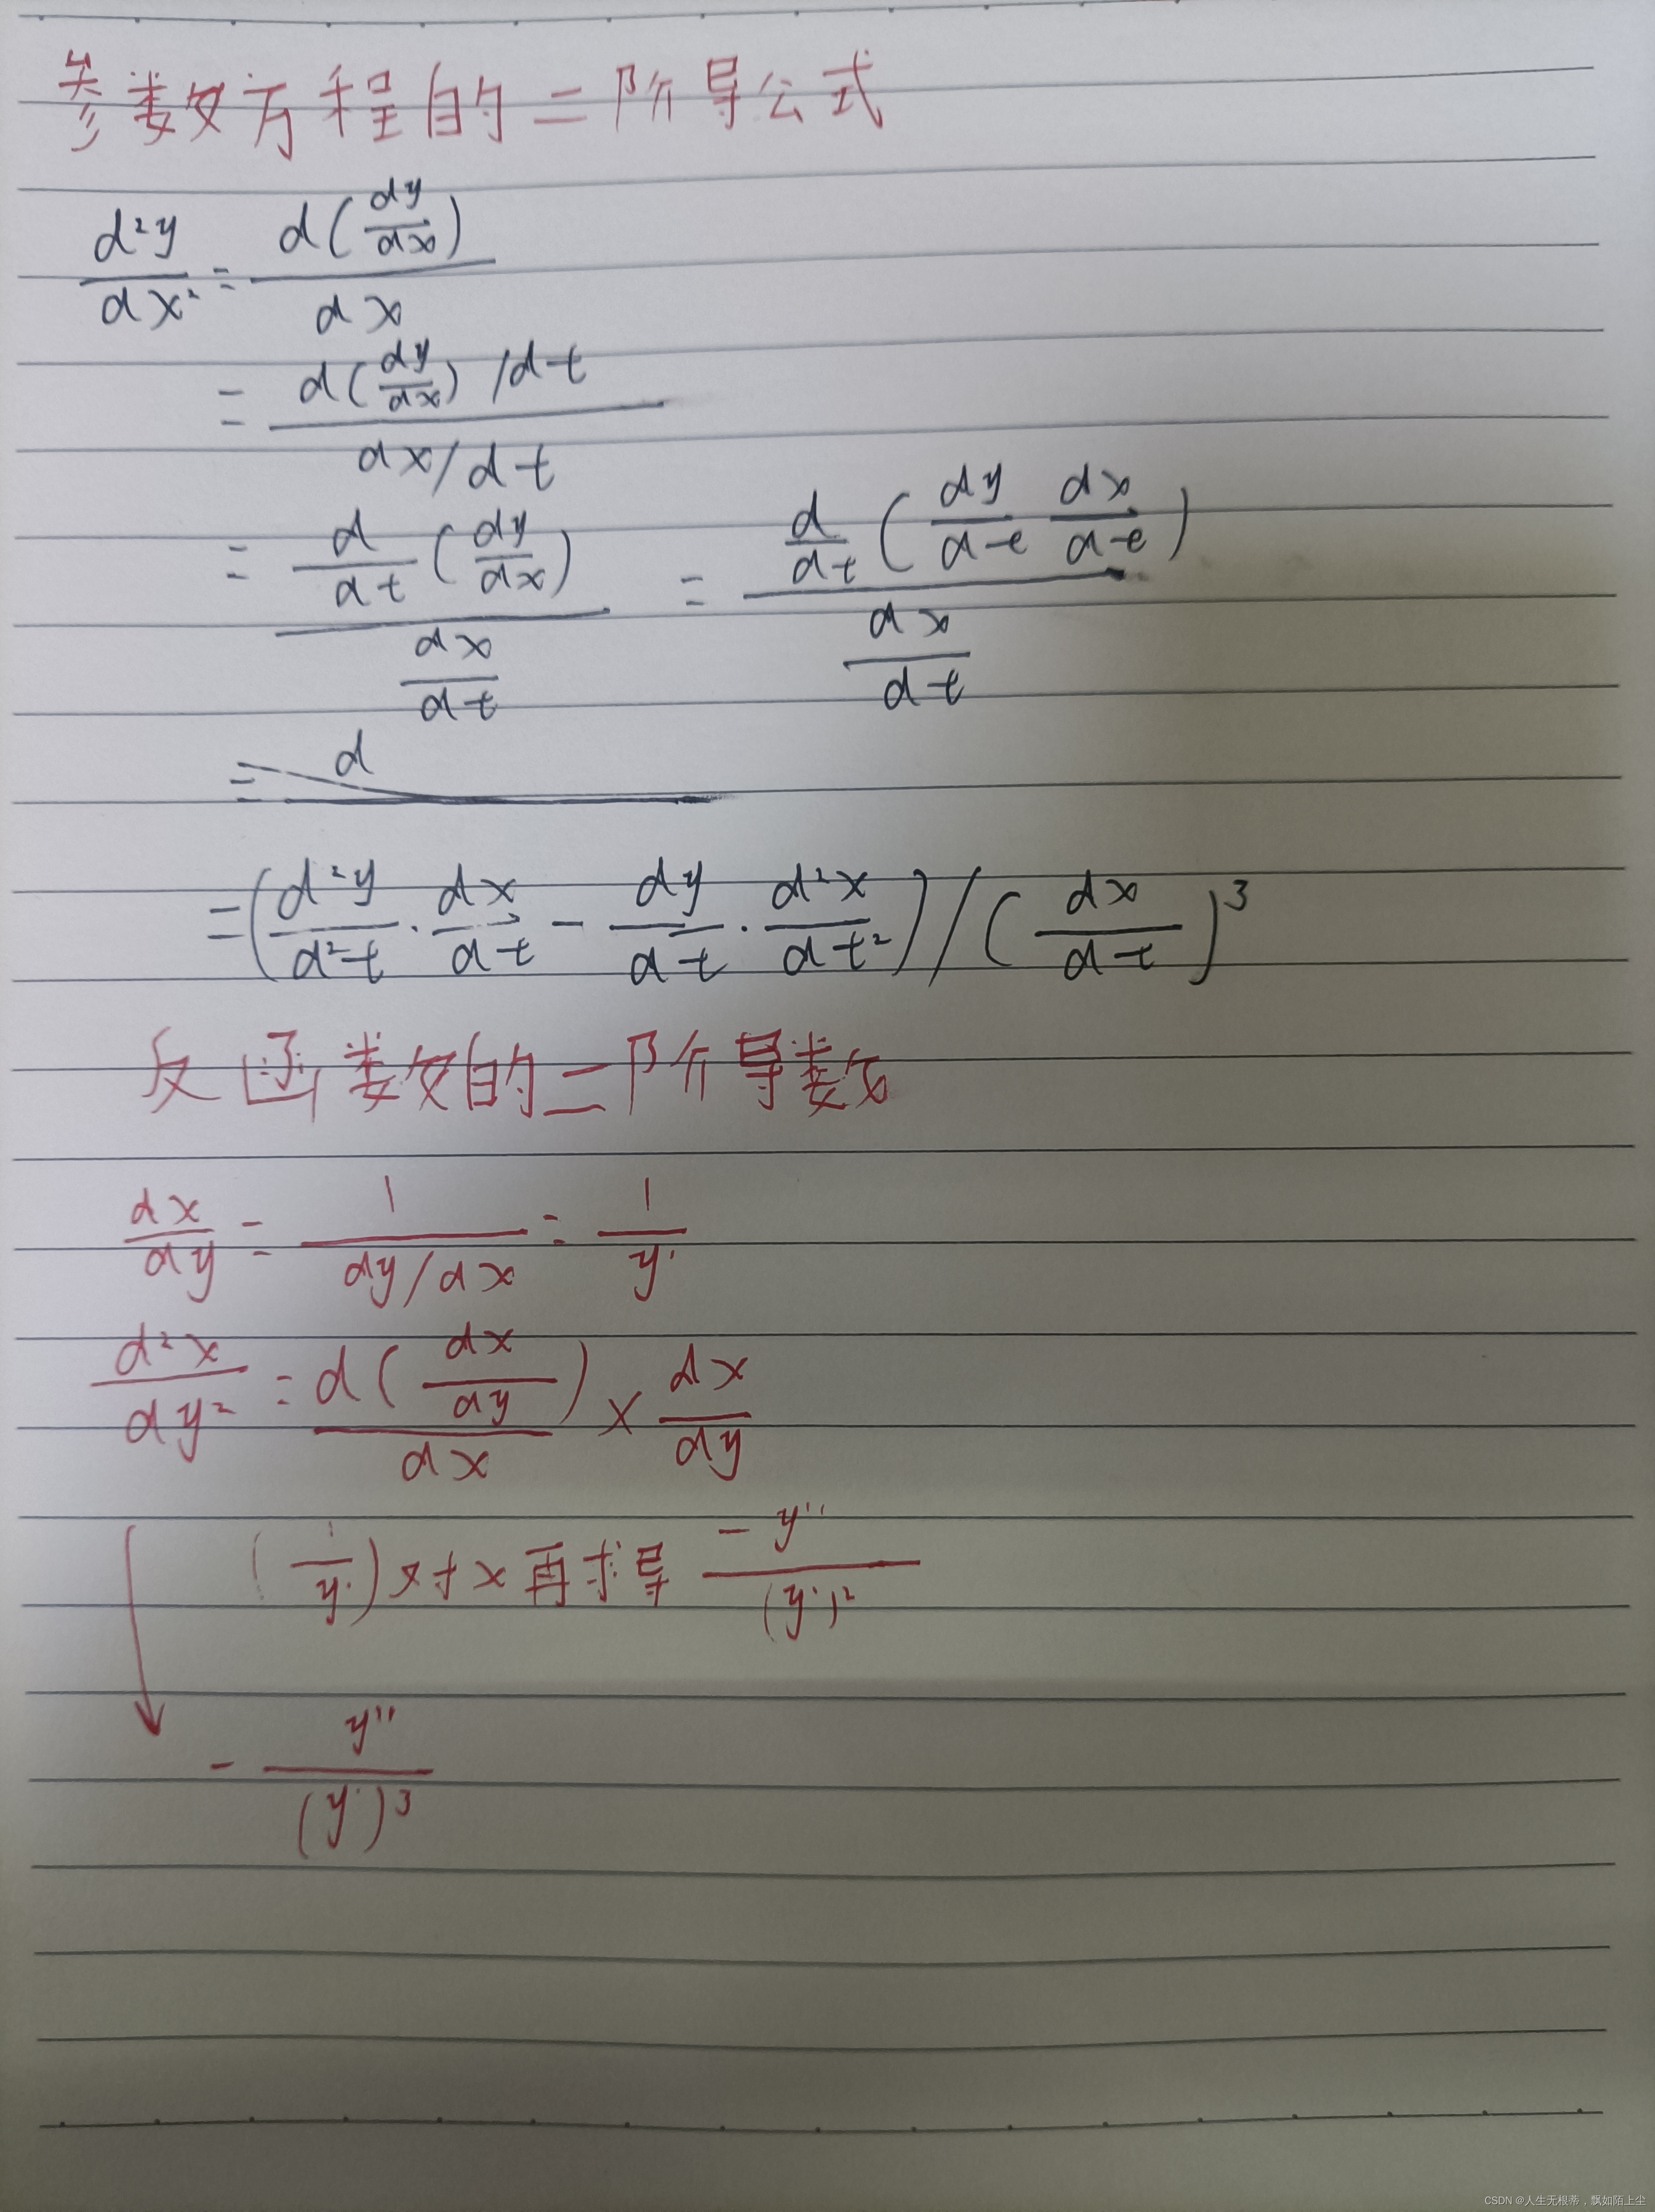 参数方程的二阶导公式
d²y/dx² = d(dy/dx)/dx
= (d(dy/dx)/dt)/(dx/dt)
= (d/dt (dy/dx))/(dx/dt) = (d/dt (dy/dt dx/dt))/(dx/dt)
= d
= (d²y/d²t · dx/dt - dy/dt · d²x/dt²) / (dx/dt)³
反函数的二阶导数
dx/dy = 1/(dy/dx) = 1/y'
d²x/dy² = d(dx/dy)/dx × dx/dy
(1/y') 对x再求导 -y''/(y')²
- y''/(y')³
CSDN @人生无根蒂，飘如陌上尘